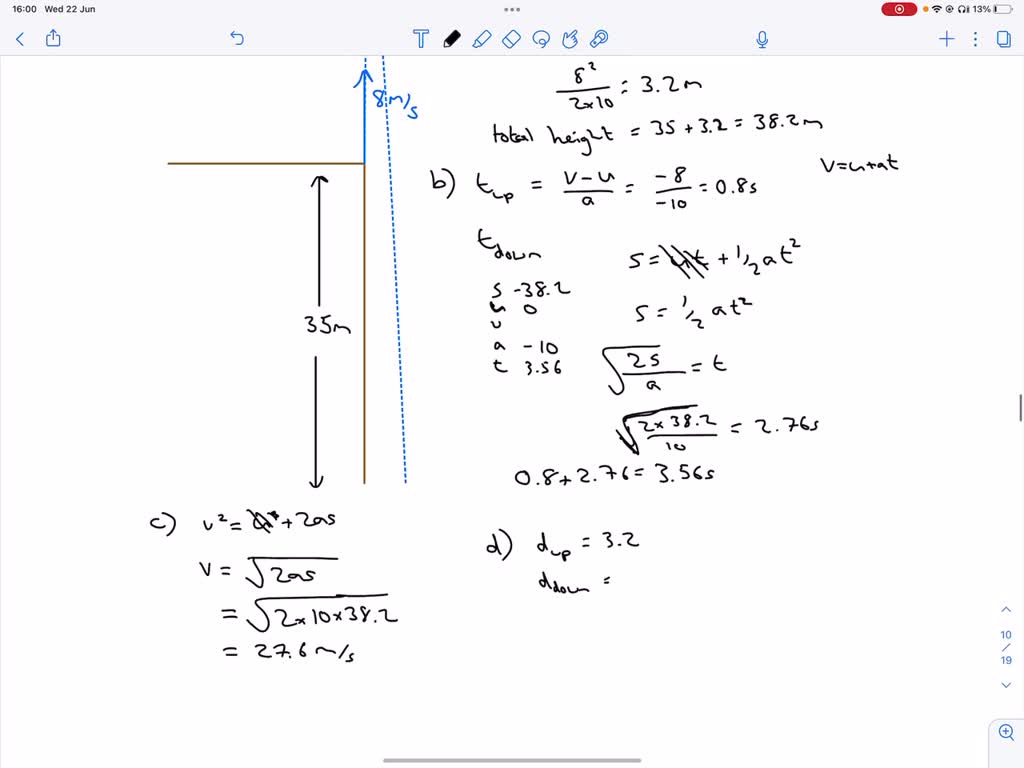 16:00 Wed 22 Jun
13%
T
8m/s
8² / 2×10 = 3.2m
total height = 35 + 3.2 = 38.2m
b) t_up = v-u / a = -8 / -10 = 0.8s
v=u+at
t_down
s = ut + ½at²
s -38.2
u 0
v
a -10
t 3.56
s = ½ at²
√2s / a = t
√2×38.2 / 10 = 2.76s
0.8+2.76= 3.56s
35m
c) v² = u² + 2as
v = √2as
= √2×10×38.2
= 27.6 m/s
d) d_up = 3.2
d_down =
10
/
19